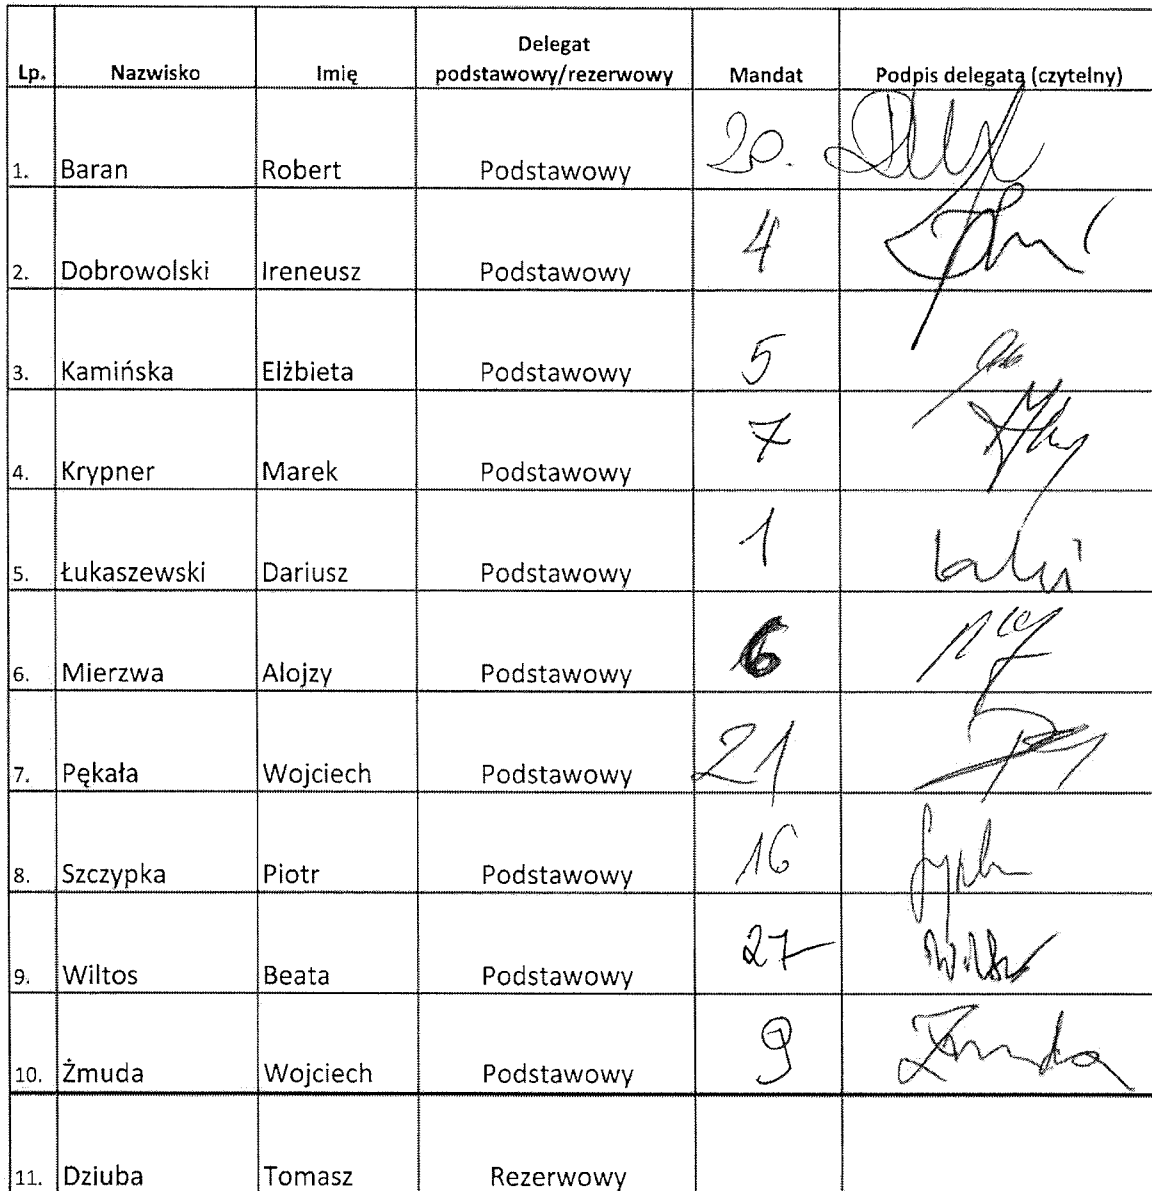 Delegat
Lp. Nazwisko Imię podstawowy/rezerwowy Mandat Podpis delegata (czytelny)
1. Baran Robert Podstawowy 20.
2. Dobrowolski Ireneusz Podstawowy 4
3. Kamińska Elżbieta Podstawowy 5
4. Krypner Marek Podstawowy 7
5. Łukaszewski Dariusz Podstawowy 1
6. Mierzwa Alojzy Podstawowy 6
7. Pękała Wojciech Podstawowy 21
8. Szczypka Piotr Podstawowy 16
9. Wiltos Beata Podstawowy 27
10. Żmuda Wojciech Podstawowy 9 Żmuda
11. Dziuba Tomasz Rezerwowy